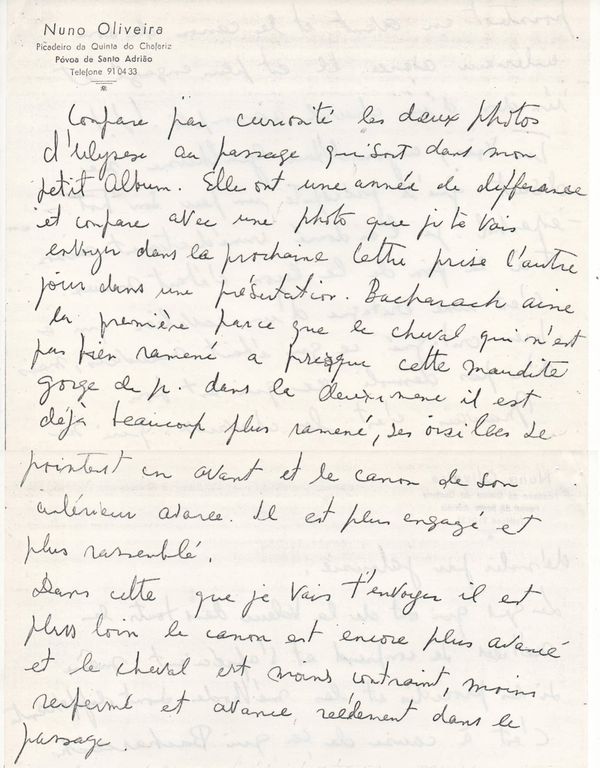 Nuno Oliveira
Picadeiro da Quinta do Chafariz
Póvoa de Santo Adrião
Telefone 91 04 33
Compare par curiosité les deux photos
d'Ulysse au passage qui sont dans mon
petit Album. Elle ont une année de difference
et compare avec une photo que je te vais
envoyer dans la prochaine lettre prise l'autre
jour dans une présentation. Bacharach aime
la première parce que le cheval qui n'est
pas bien ramené a presque cette maudite
gorge de p. dans la deuxieme il est
déjà beaucoup plus ramené, ses oreilles se
pointent en avant et le canon de son
antérieur avance. Il est plus engagé et
plus rassemblé.
Dans cette que je vais t'envoyer il est
plus loin le canon est encore plus avancé
et le cheval est moins contraint, moins
renfermé et avance réelement dans le
passage.